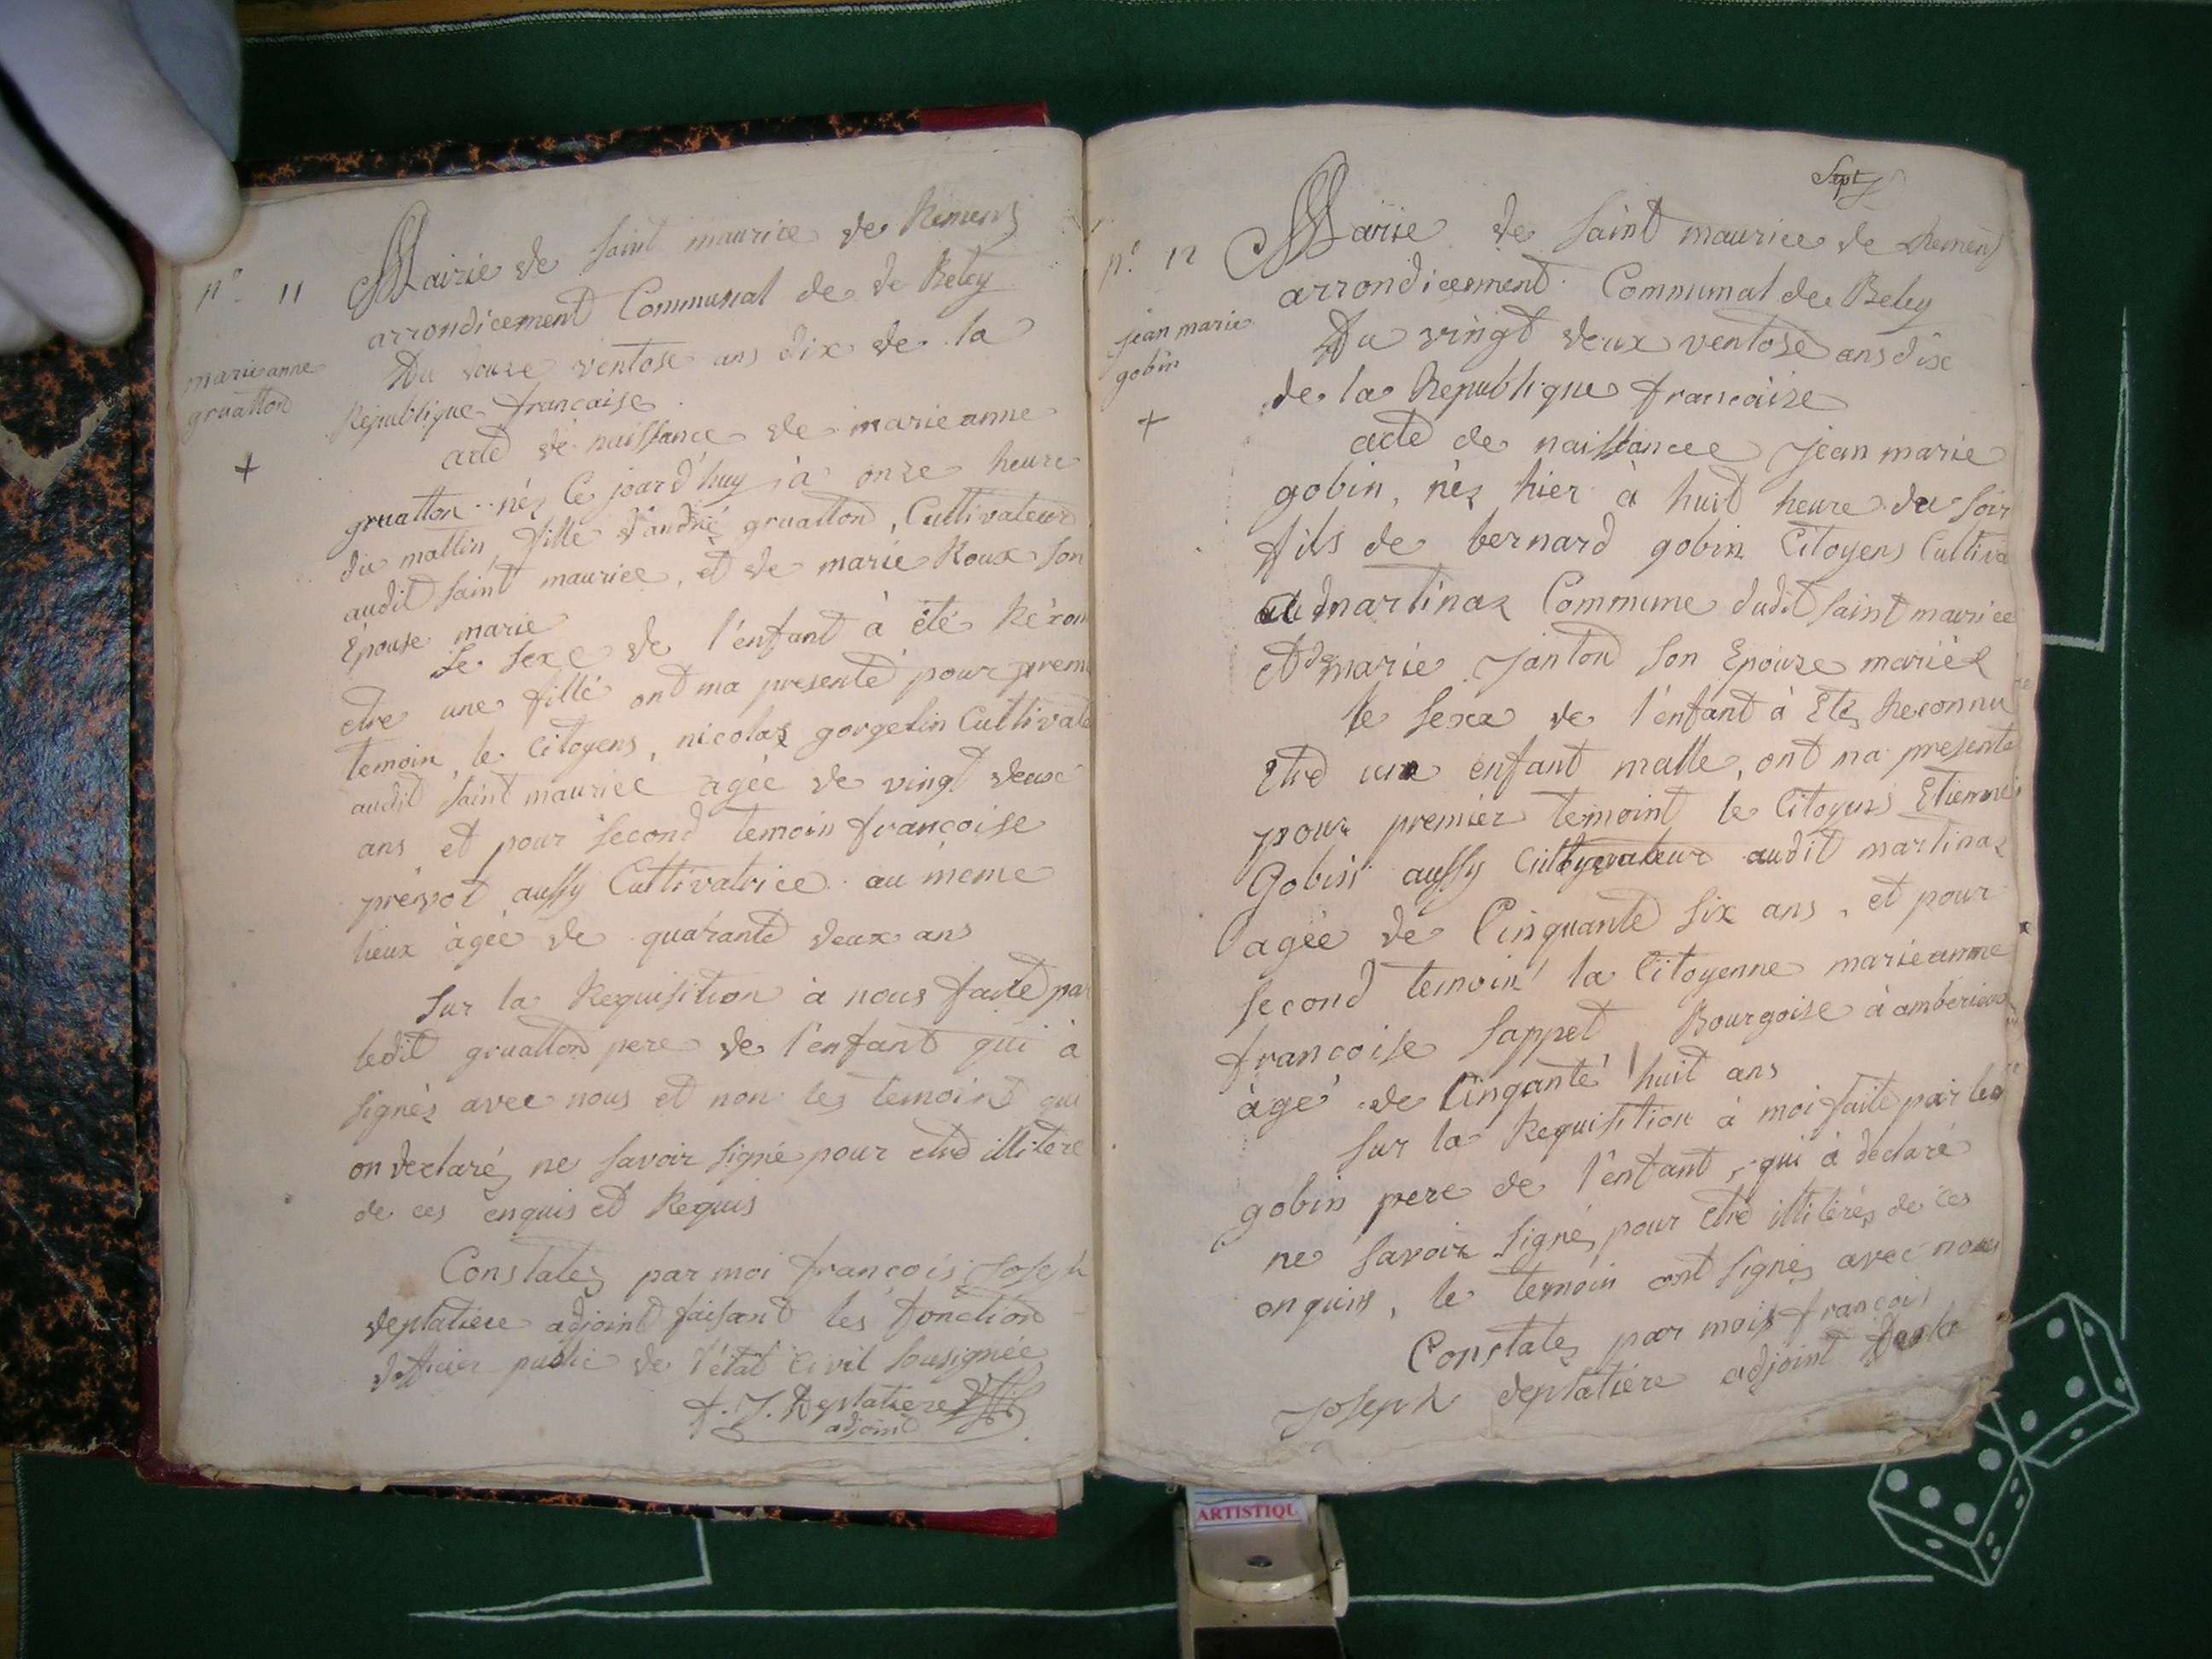 n.o 11
marieanne
gruatton
+
Mairie de Saint maurice de Remens
arrondicement Communal de de Beley
Du douze ventose ans dix de la
Republique francaise
acte de naissance de marieanne
gruatton néz Ce jourd'huy à onze heure
du mattin, fille d'andré gruatton, Cultivateur
audit Saint maurice, et de marie Roux Son
Epouse marié
Le Sexe de l'enfant à été Récon
etre une fille ont ma presenté pour prem
temoin le Citoyens, nicolas gorgelin Cultivate
audit Saint maurice agée de vingt deux
ans et pour second temoin françoise
prévot aussy Cultivatrice au même
lieux àgée de quarante deux ans
Sur la Requisition à nous faite par
ledit gruatton pere de l'enfant qui à
signéz avec nous et non les temoint qui
on declaréz ne savoir signé pour etre illitere
de ces enquis et Requis
Constatez par moi françois Joseph
deplatiere adjoint faisant les fonction
dofficier public de l'état Civil Sousignée
f. J. Deplatiere
adjoint
Sept
n.o 12
jean marie
gobin
+
Mairie de Saint maurice de Remens
arrondicement Communal de Beley
Du vingt deux ventose ans dix
de la Republique francaize
acte de naissance Jean marie
gobin, néz hier à huit heure du soir
fils de bernard gobin Citoyens Cultiva
de martinaz Commune dudit Saint maurice
et de marie Janton Son Epouze mariéz
le Sexe de l'enfant à Etéz Reconnu
Etre un enfant malle, ont ma presenté
pour premier temoint le Citoyens Etienne
Gobin aussy Cultyvateur audit martinaz
agée de Cinquante six ans, et pour
second temoin la Citoyenne marieanne
francoise Sappet Bourgoise à amberieux
àgé de Cinqanté huit ans
Sur la Requisition à moi faite par led
gobin pere de l'enfant, qui à déclaré
ne savoir signéz pour etre illiteréz de ces
enquis, le temoin ont signéz avec nous
Constatez par mois françois
Joseph deplatiére adjoint
ARTISTIQU